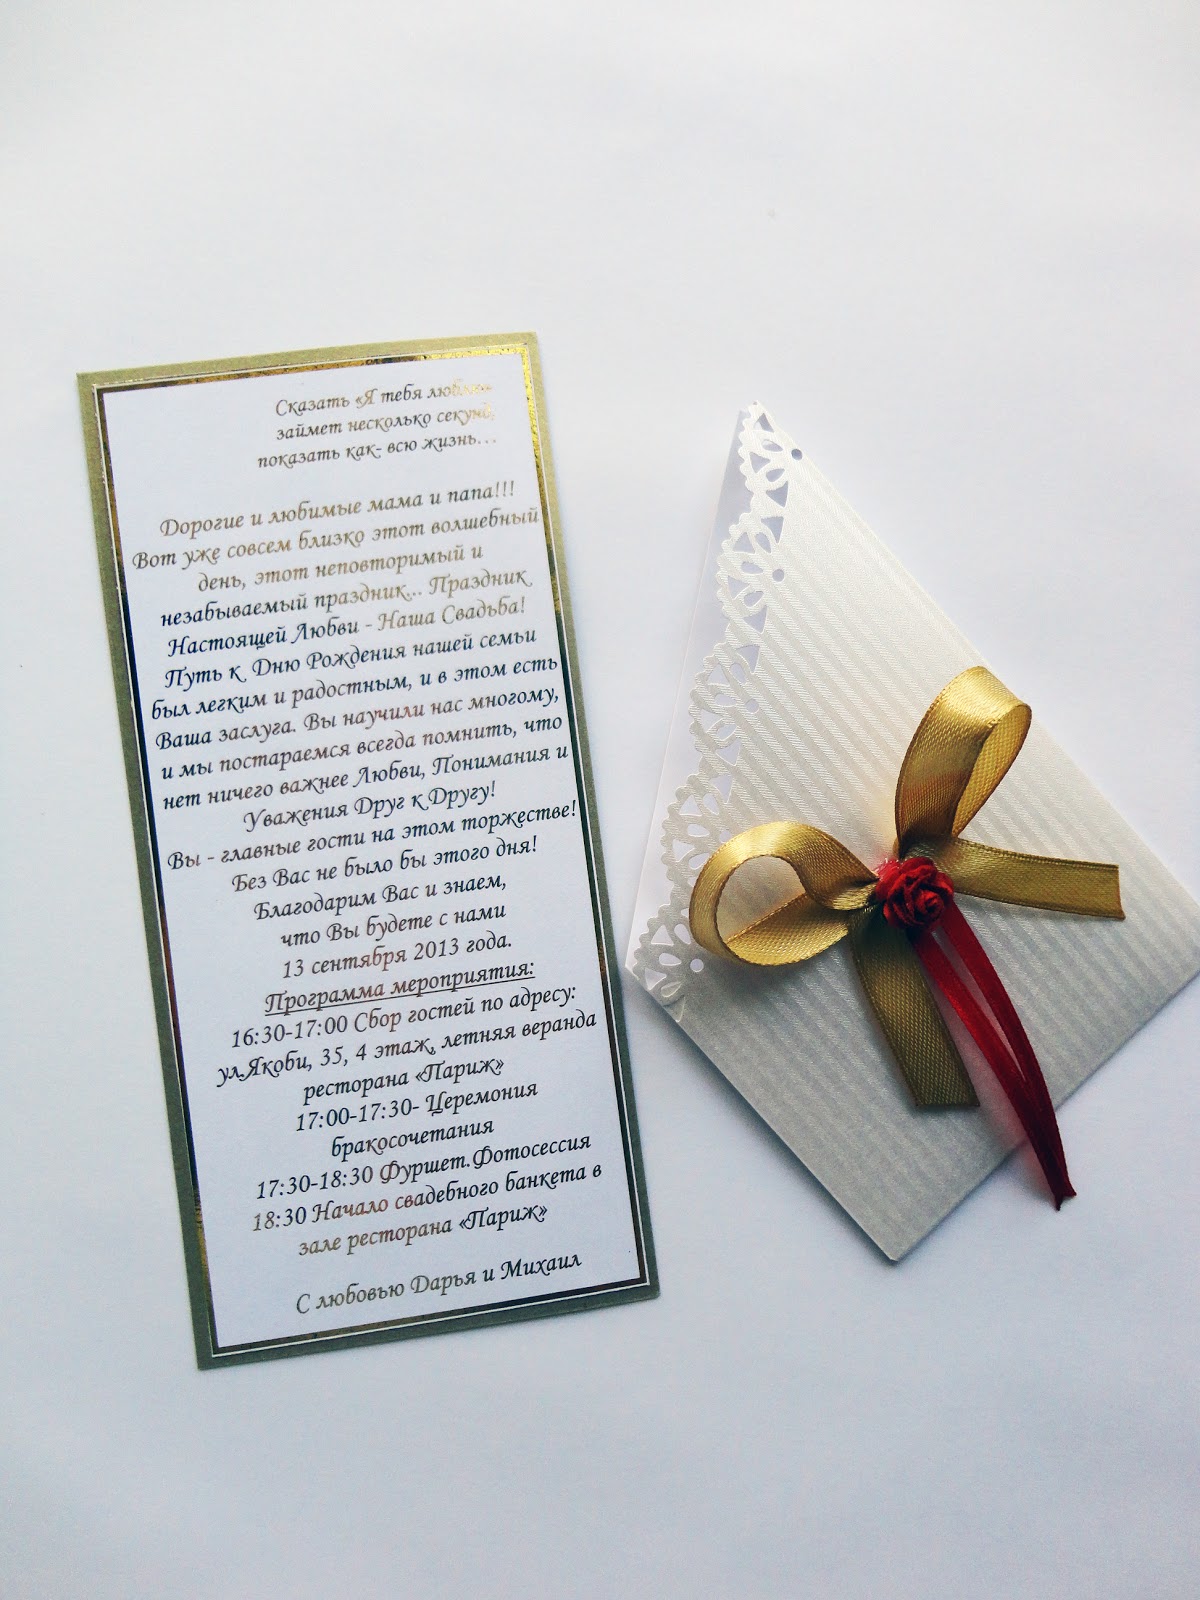 Сказать «Я тебя люблю»
займет несколько секунд,
показать как- всю жизнь...
Дорогие и любимые мама и папа!!!
Вот уже совсем близко этот волшебный
день, этот неповторимый и
незабываемый праздник... Праздник
Настоящей Любви - Наша Свадьба!
Путь к Дню Рождения нашей семьи
был легким и радостным, и в этом есть
Ваша заслуга. Вы научили нас многому,
и мы постараемся всегда помнить, что
нет ничего важнее Любви, Понимания и
Уважения Друг к Другу!
Вы - главные гости на этом торжестве!
Без Вас не было бы этого дня!
Благодарим Вас и знаем,
что Вы будете с нами
13 сентября 2013 года.
Программа мероприятия:
16:30-17:00 Сбор гостей по адресу:
ул.Якоби, 35, 4 этаж, летняя веранда
ресторана «Париж»
17:00-17:30- Церемония
бракосочетания
17:30-18:30 Фуршет.Фотосессия
18:30 Начало свадебного банкета в
зале ресторана «Париж»
С любовью Дарья и Михаил